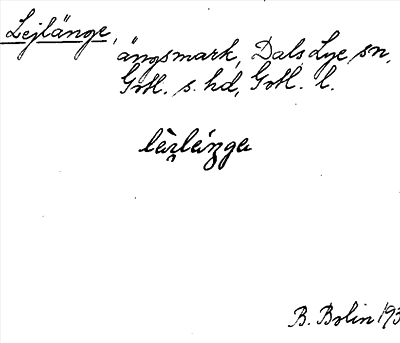 Lejlänge,
ängsmark, Dals Lye sn,
Gotl. s. hd, Gotl. l.
B. Bolin 193